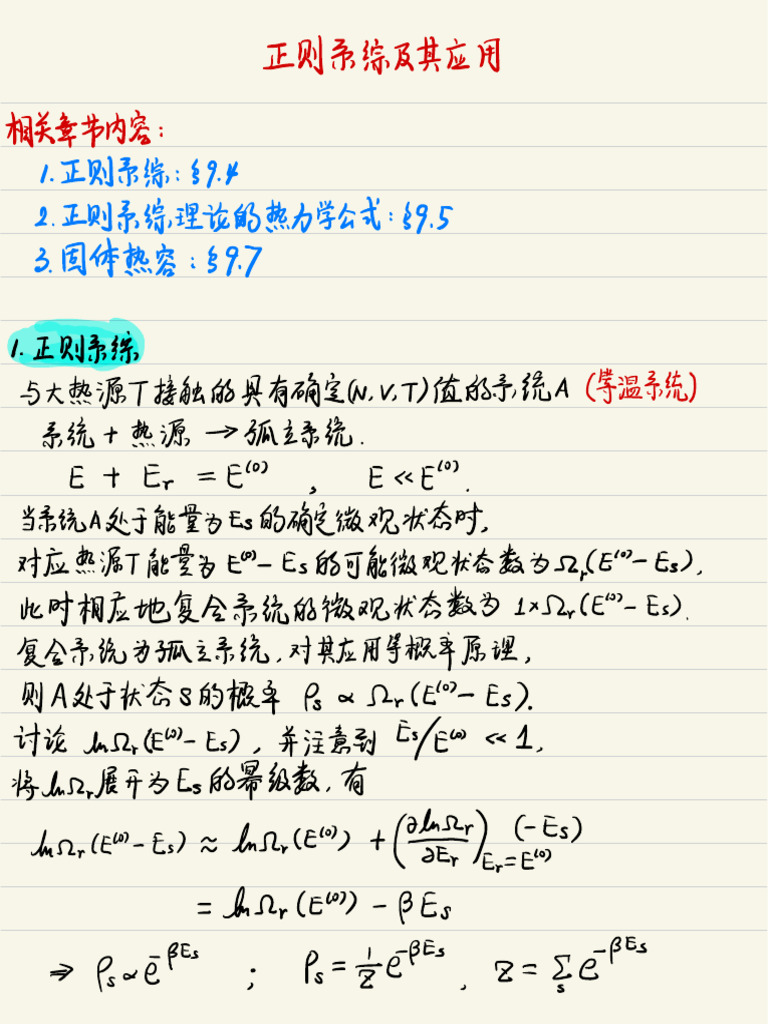 正则系综及其应用
相关章节内容:
1.正则系综:§9.4
2.正则系综理论的热力学公式:§9.5
3.固体热容:§9.7
1.正则系综
与大热源T接触的具有确定(N,V,T)值的系统A (等温系统)
系统+热源→孤立系统.
E + Eᵣ = E⁽⁰⁾ , E ≪ E⁽⁰⁾.
当系统A处于能量为Eₛ的确定微观状态时,
对应热源T能量为E⁽⁰⁾-Eₛ的可能微观状态数为Ωᵣ(E⁽⁰⁾-Eₛ),
此时相应地复合系统的微观状态数为 1×Ωᵣ(E⁽⁰⁾-Eₛ).
复合系统为孤立系统,对其应用等概率原理,
则A处于状态S的概率 ρₛ ∝ Ωᵣ(E⁽⁰⁾-Eₛ).
讨论 lnΩᵣ(E⁽⁰⁾-Eₛ),并注意到 Eₛ/E⁽⁰⁾ ≪ 1,
将lnΩᵣ展开为Eₛ的幂级数,有
lnΩᵣ(E⁽⁰⁾-Eₛ) ≈ lnΩᵣ(E⁽⁰⁾) + (∂lnΩᵣ/∂Eᵣ)_{Eᵣ=E⁽⁰⁾} (-Eₛ)
= lnΩᵣ(E⁽⁰⁾) - βEₛ
⇒ ρₛ ∝ e^{-βEₛ} ; ρₛ = 1/Z e^{-βEₛ} , Z = Σₛ e^{-βEₛ}